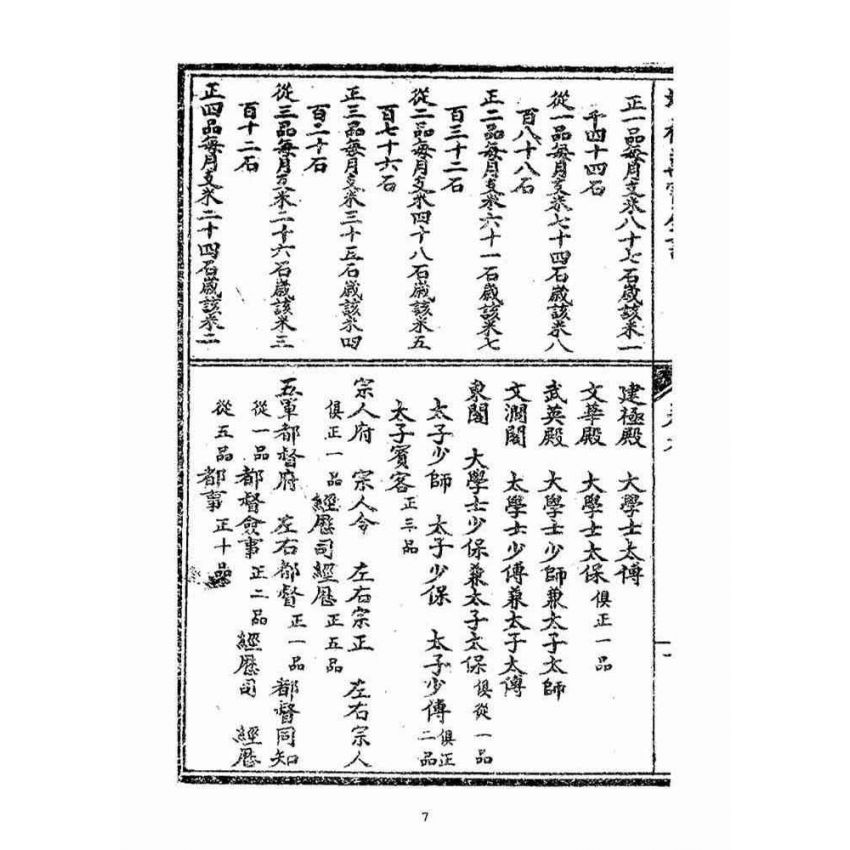 正一品每月支米八十七石歲該米一
千四十四石
從一品每月支米七十四石歲該米八
百八十八石
正二品每月支米六十一石歲該米七
百三十二石
從二品每月支米四十八石歲該米五
百七十六石
正三品每月支米三十五石歲該米四
百二十石
從三品每月支米二十六石歲該米三
百十二石
正四品每月支米二十四石歲該米二
建極殿 大學士太傅
文華殿 大學士太保俱正一品
武英殿 大學士少師兼太子太師
文淵閣 大學士少傅兼太子太傅
東閣 大學士少保兼太子太保俱從一品
太子少師 太子少保 太子少傅俱正二品
太子賓客正三品
宗人府 宗人令 左右宗正 左右宗人
俱正一品 經歷司經歷正五品
五軍都督府 左右都督正一品 都督同知
從一品 都督僉事正二品 經歷司 經歷
從五品 都事正十品
7